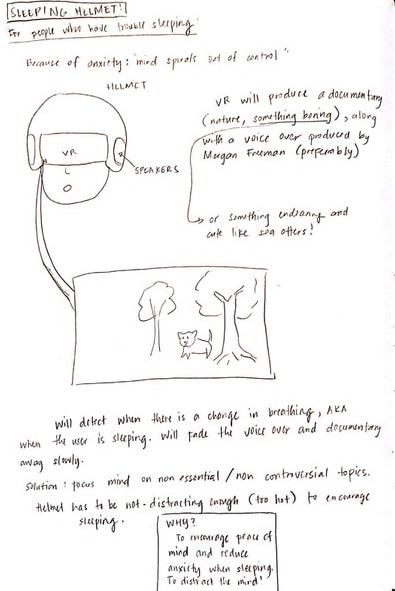 SLEEPING HELMET!
For people who have trouble sleeping
Because of anxiety: "mind spirals out of control"
HELMET
VR will produce a documentary
(nature, something boring), along
with a voice over produced by
Morgan Freeman (preferably)
VR
SPEAKERS
or something endearing and
cute like sea otters!
Will detect when there is a change in breathing, AKA
when the user is sleeping. Will fade the voice over and documentary
away slowly.
Solution: focus mind on non essential/non controversial topics.
Helmet has to be not-distracting enough (too hot) to encourage
sleeping.
WHY?
To encourage peace of
mind and reduce
anxiety when sleeping.
To distract the mind!